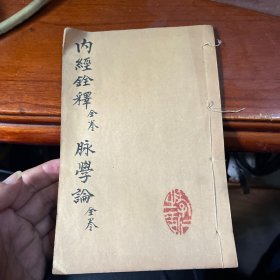 内經銓釋 全卷
脉學論 全卷